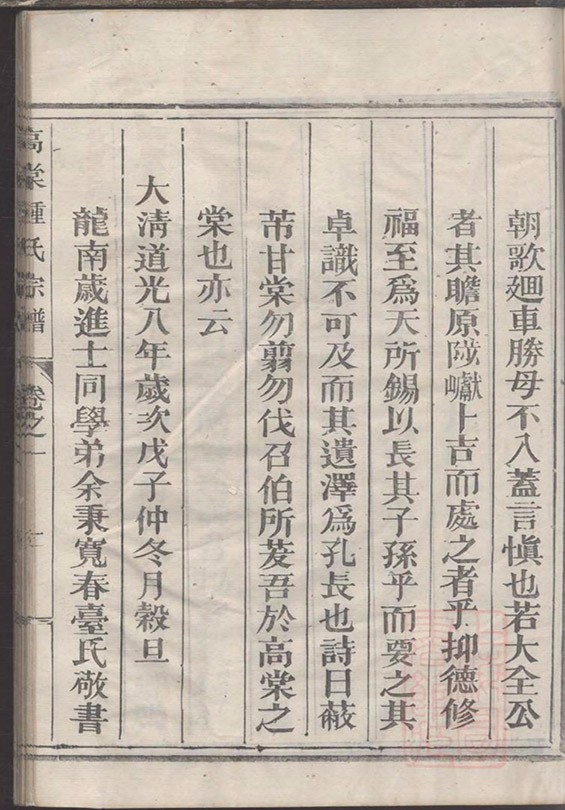 朝歌廻車勝母不入蓋言慎也若大全公
者其瞻原陟巘卜吉而處之者乎抑德修
福至為天所錫以長其子孫乎而要之其
卓識不可及而其遺澤為孔長也詩曰蔽
芾甘棠勿翦勿伐召伯所茇吾於高棠之
棠也亦云
大清道光八年歲次戊子仲冬月穀旦
龍南歲進士同學弟余秉寬春臺氏敬書
高棠鍾氏宗譜
卷之一